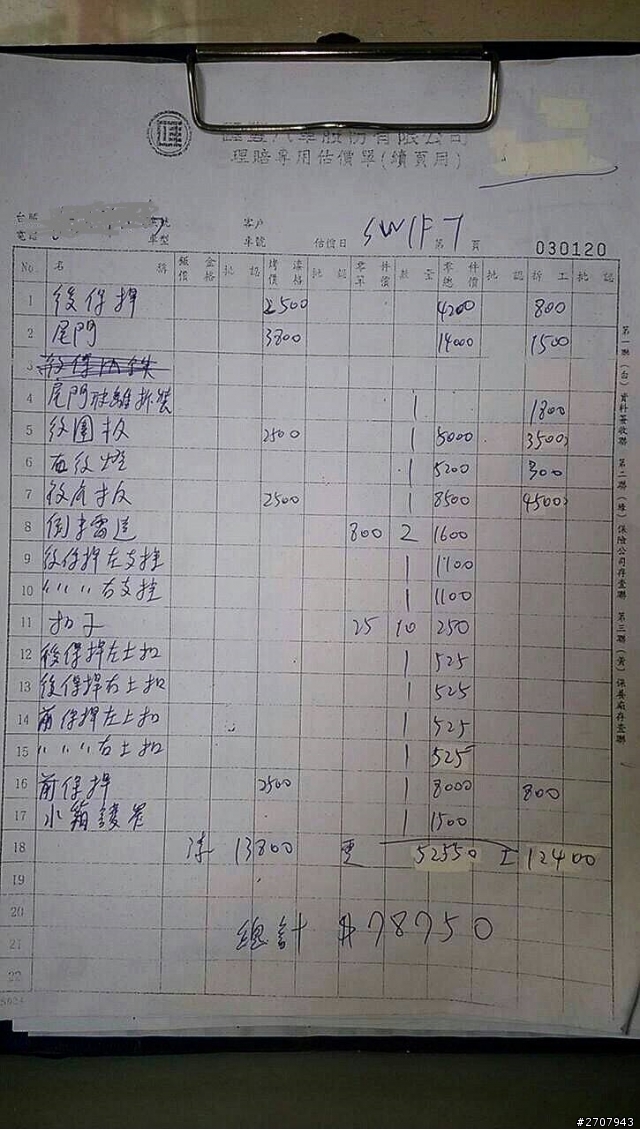 股份有限公司
理賠專用估價單(續頁用)
電話 車型 車號 估價日 SWIFT 第 頁 030120
客戶
No. 名 稱 鈑金價格 批認 烤漆價格 批認 零件單價 數量 零件總價 批認 拆工 批認
1 後保捍 2500 4200 800
2 尾門 3800 14000 1500
3
4 尾門玻璃拆裝 1 1800
5 後圍板 2500 1 5000 3500
6 右後燈 1 5200 300
7 後底板 2500 1 8500 4500
8 倒車雷達 800 2 1600
9 後保捍左支撐 1 1100
10 〃 〃 〃 右支撐 1 1100
11 扣子 25 10 250
12 後保捍左土扣 1 525
13 後保捍右土扣 1 525
14 前保捍左土扣 1 525
15 〃 〃 〃 右土扣 1 525
16 前保捍 2500 1 8000 800
17 水箱護罩 1 1500
18 漆 13800 52550 工 12400
19
20
21 總計 $78750
22
第一聯(白)資料簽收聯 第二聯(綠)保險公司存查聯 第三聯(黃)保養廠存查聯
#2707943